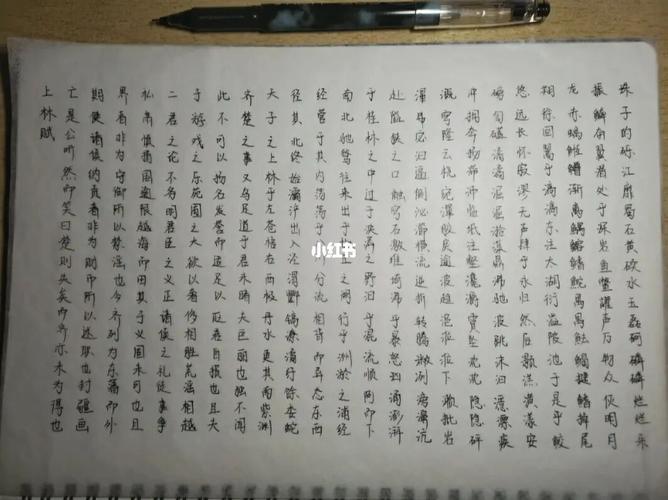 上林赋
亡是公听然而笑曰楚则失矣而齐亦未为得也
使诸侯纳贡者非为财而所以述职也封疆画
界者非为守御所以禁淫也今齐列为东藩而外
私肃慎捐国逾限越海而田其于义固未可也且
二君之论不务明君臣之义正诸侯之礼徒事争
于游戏之乐苑囿之大欲以奢侈相胜荒淫相越
此不可以扬名发誉而适足以贬君自损也且夫
齐楚之事又乌足道乎君未睹夫巨丽也独不闻
天子之上林乎左苍梧右西极丹水更其南紫渊
径其北终始灞浐出入泾渭酆镐潦潏纡馀委蛇
经营乎其内荡荡乎分流相背而异态东西
南北驰骛往来出乎丘之阙行乎洲淤之浦经
乎桂林之中过乎泱漭之野汩乎混流顺阿而下
赴隘狭之口触穹石激堆埼沸乎暴怒汹涌澎湃
滭弗宓汩逼侧泌瀄横流逆折转腾潎冽滂濞沆
溉穹隆云桡宛潬胶戾逾波趋浥莅莅下濑批岩
冲拥奔扬滞沛临坻注壑瀺灂霣坠沉沉隐隐砰
磅訇礚潏潏淈淈湁潗鼎沸驰波跳沫汩漂疾
悠远长怀寂漻无声肆乎永归然后灏溔潢漾安
翔徐回翯乎滈滈东注大湖衍溢陂池于是乎蛟
龙赤螭渐离鰅禺禺揵鳍掉尾
振鳞奋翼潜处乎深岩鱼鳖讙声万物众伙明月
珠子的砾江靡蜀石黄碝水玉磊砢磷磷烂烂采
小红书